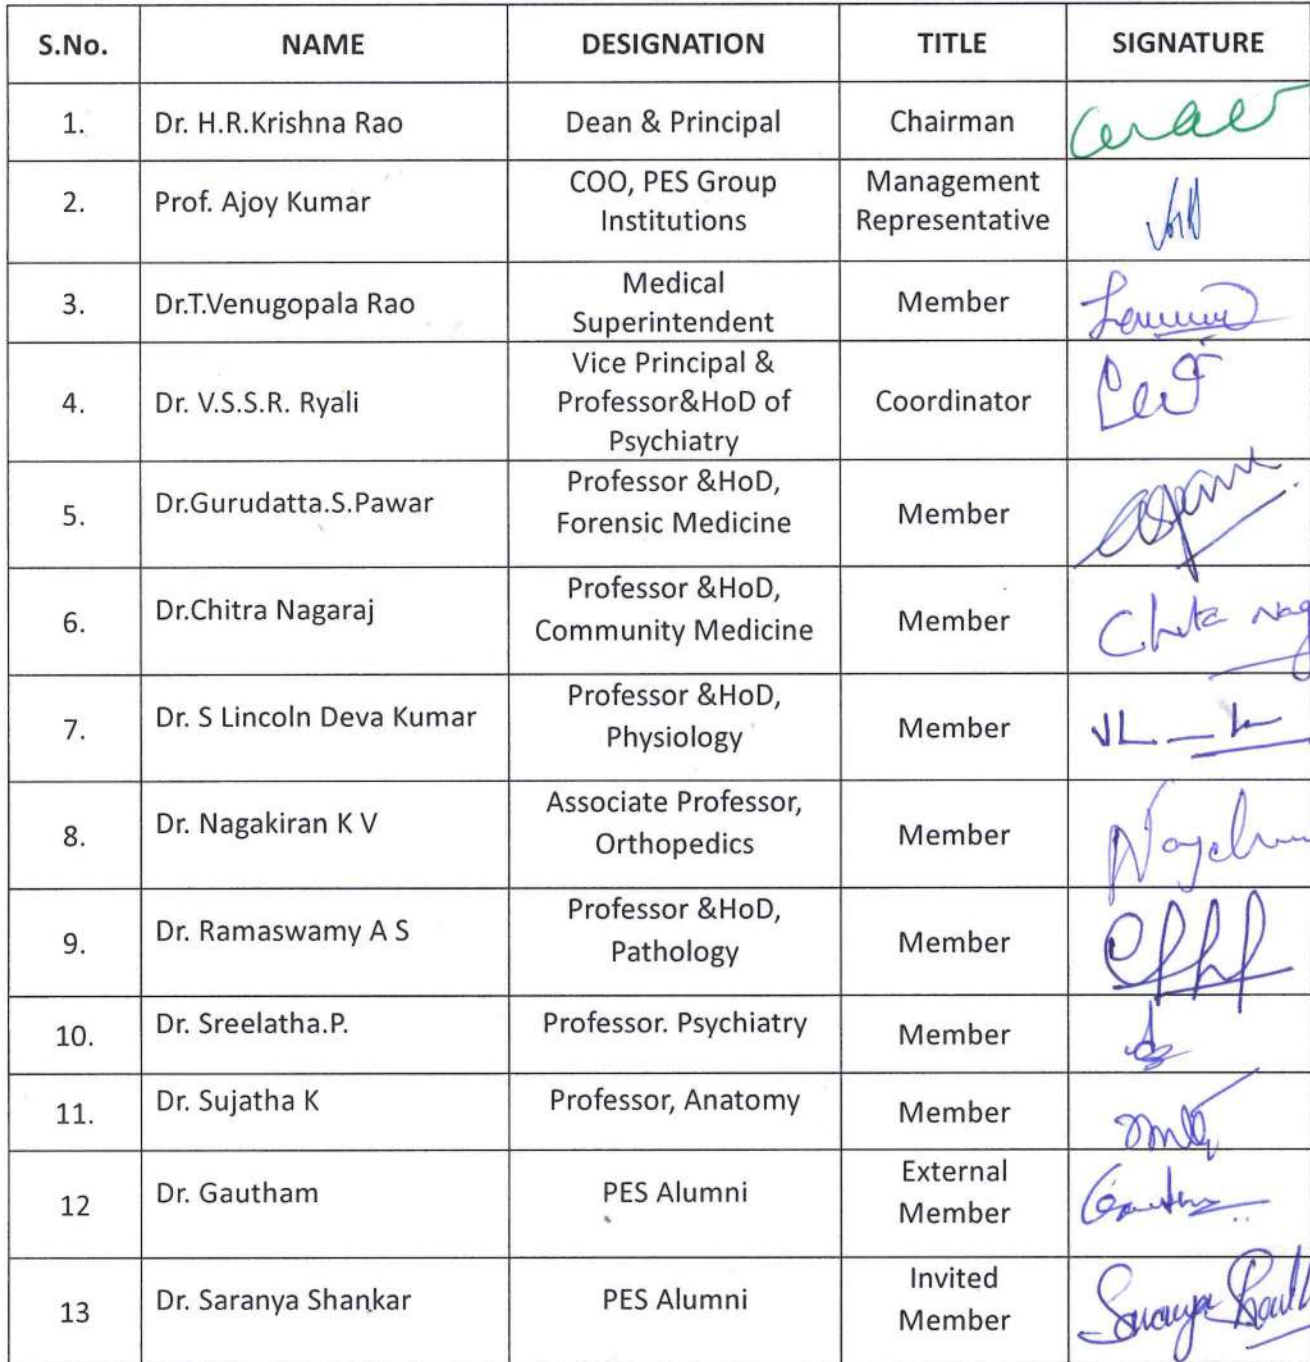 S.No. NAME DESIGNATION TITLE SIGNATURE
1. Dr. H.R.Krishna Rao Dean & Principal Chairman
2. Prof. Ajoy Kumar COO, PES Group Institutions Management Representative
3. Dr.T.Venugopala Rao Medical Superintendent Member
4. Dr. V.S.S.R. Ryali Vice Principal & Professor&HoD of Psychiatry Coordinator
5. Dr.Gurudatta.S.Pawar Professor &HoD, Forensic Medicine Member
6. Dr.Chitra Nagaraj Professor &HoD, Community Medicine Member
7. Dr. S Lincoln Deva Kumar Professor &HoD, Physiology Member
8. Dr. Nagakiran K V Associate Professor, Orthopedics Member
9. Dr. Ramaswamy A S Professor &HoD, Pathology Member
10. Dr. Sreelatha.P. Professor. Psychiatry Member
11. Dr. Sujatha K Professor, Anatomy Member
12 Dr. Gautham PES Alumni External Member
13 Dr. Saranya Shankar PES Alumni Invited Member